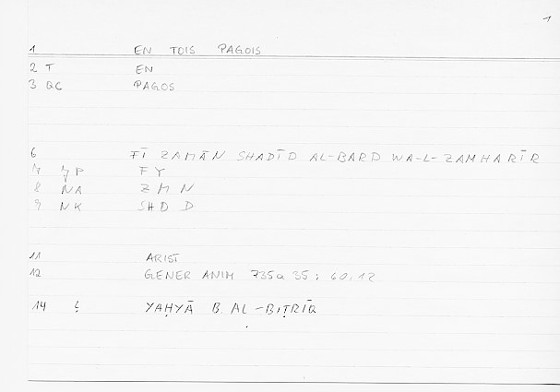 1
1 EN TOIS PAGOIS
2 T EN
3 BC PAGOS
6 FĪ ZAMĀN SHADĪD AL-BARD WA-L-ZAMHARĪR
7 FY
8 NA ZMN
9 NK SHD D
11 ARIST
12 GENER ANIM 735a 35 ; 60.12
14 YAḤYĀ B. AL-BIṬRĪQ